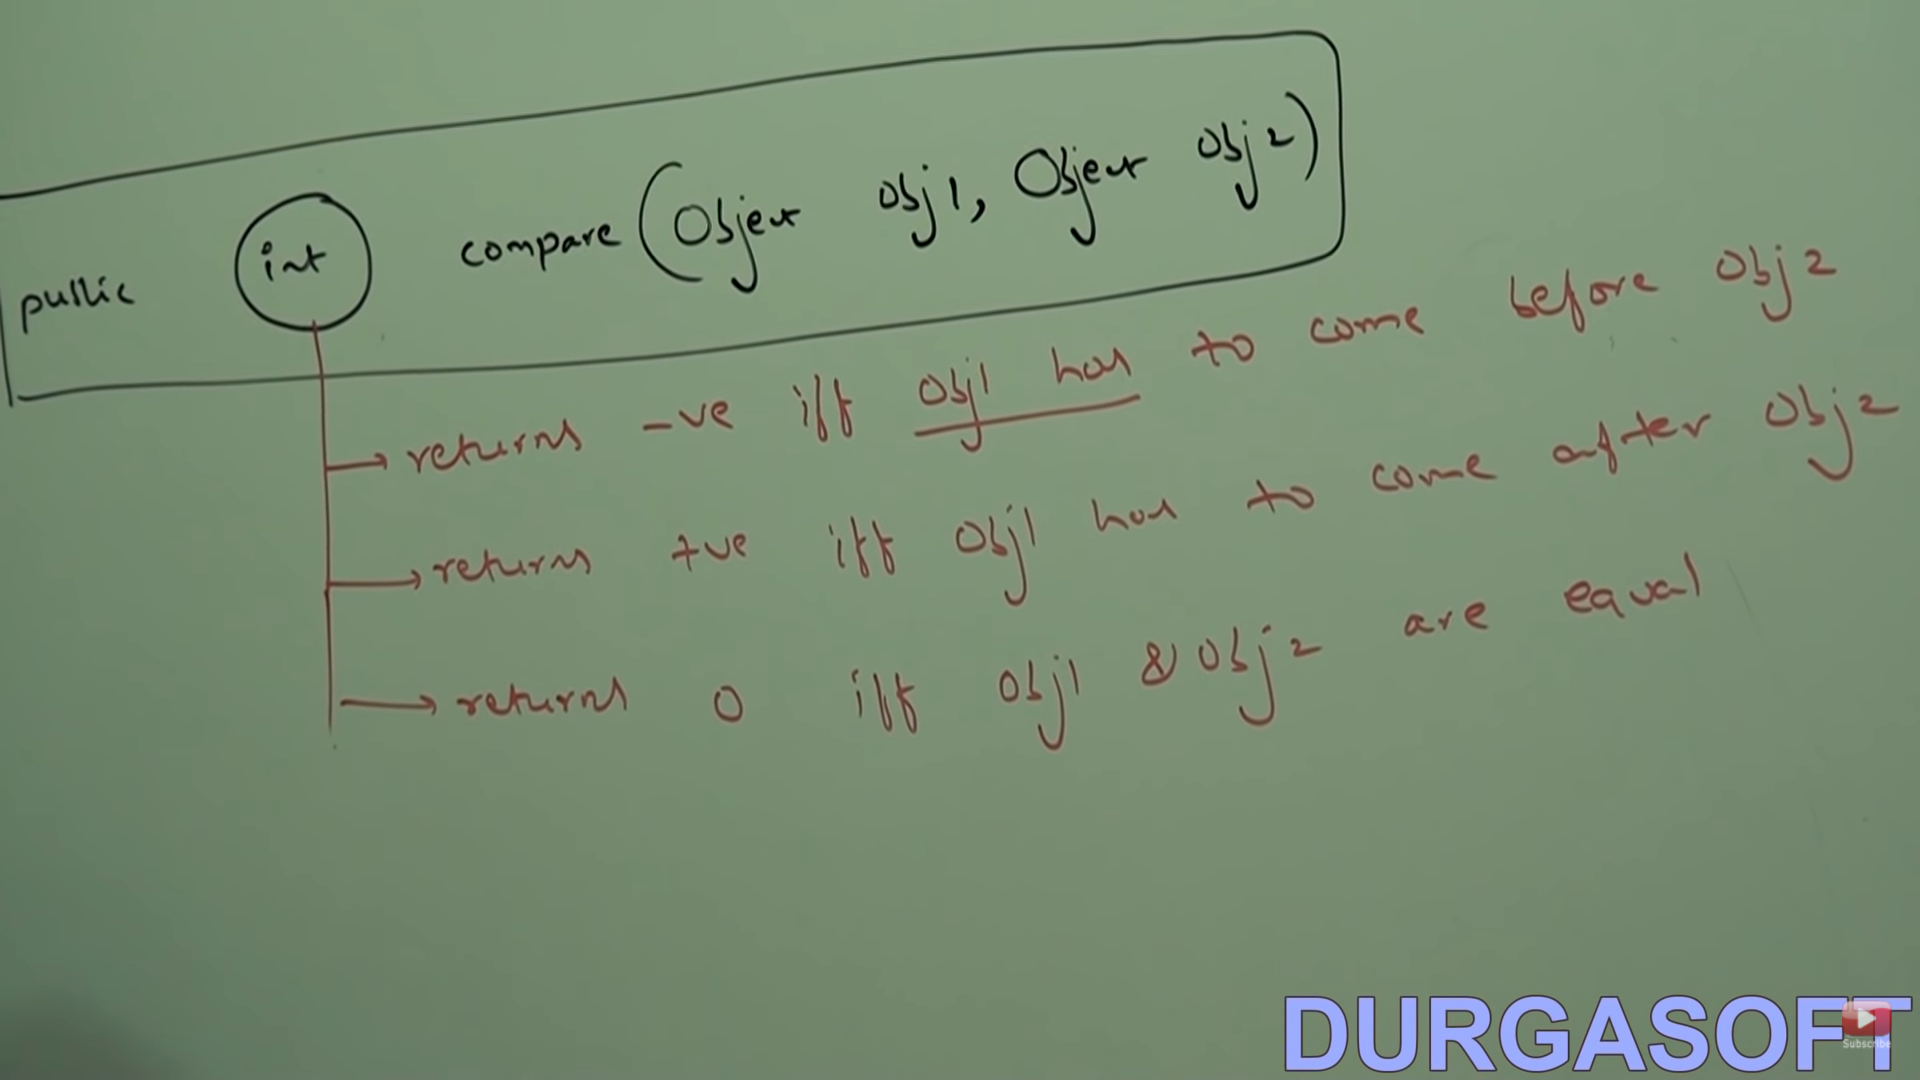 public int compare(Object obj1, Object obj2)
→ returns -ve iff obj1 has to come before obj2
→ returns +ve iff obj1 has to come after obj2
→ returns 0 iff obj1 & obj2 are equal
DURGASOFT
Subscribe